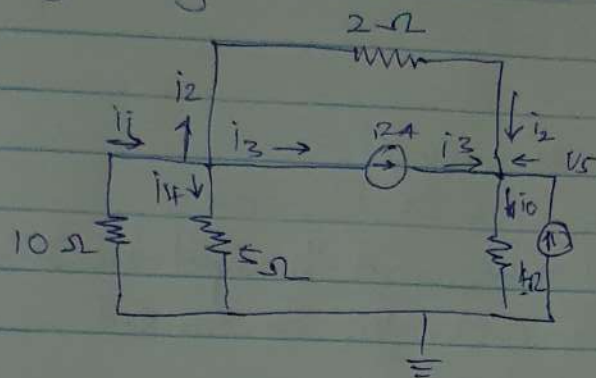 2 Ω
i2
i1
i3
i3
i2
i4
i0
10 Ω
5 Ω
4Ω